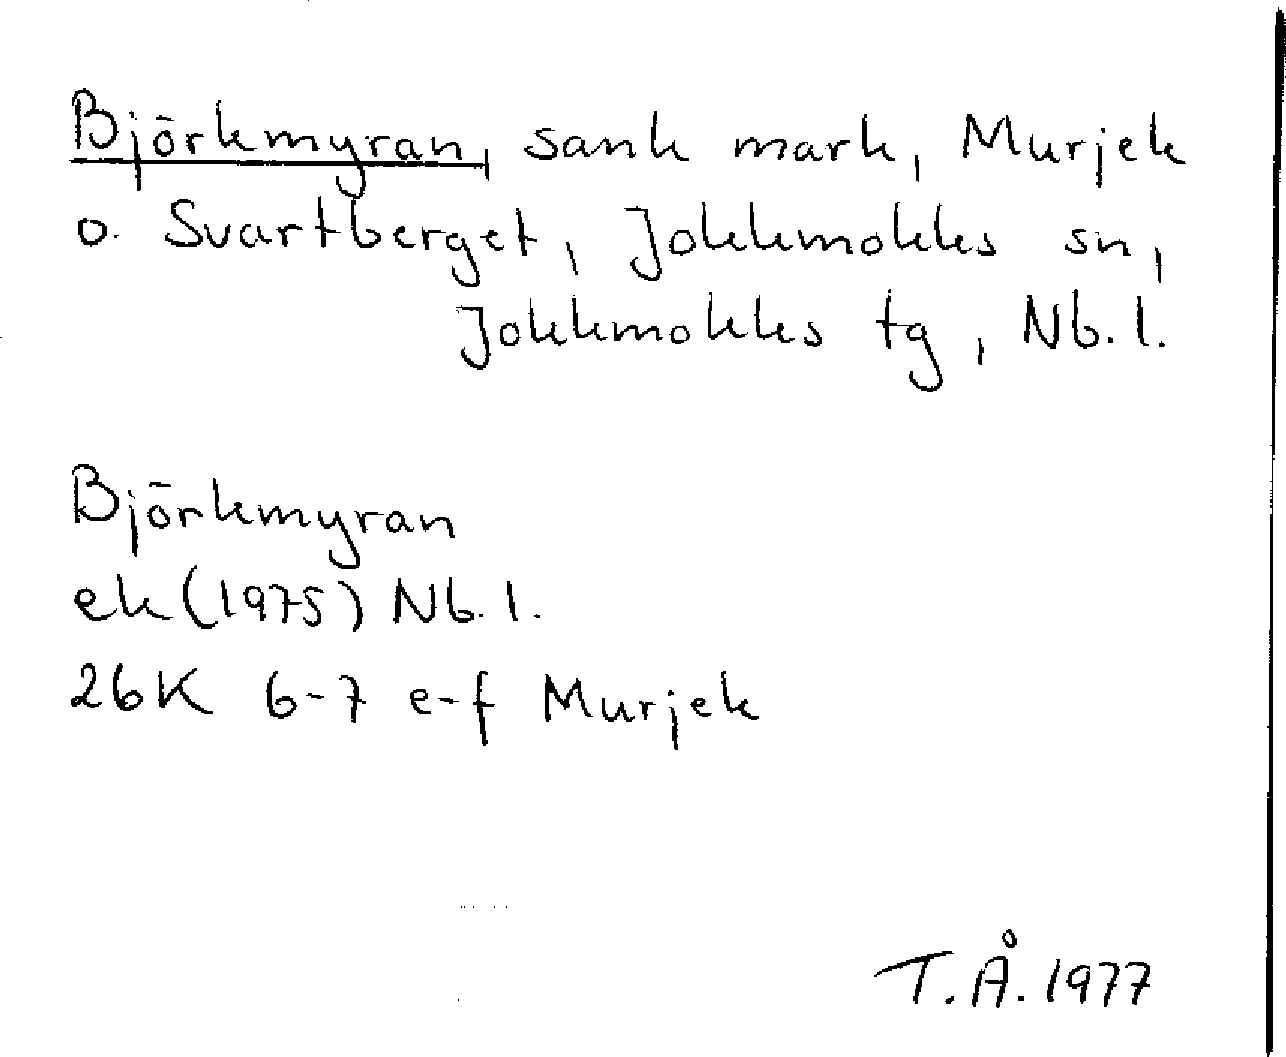 Björkmyran, sank mark, Murjek
o. Svartberget, Jokkmokks sn,
Jokkmokks tg, Nb. l.
Björkmyran
ek (1975) Nb. l.
26K 6-7 e-f Murjek
T.Å. 1977